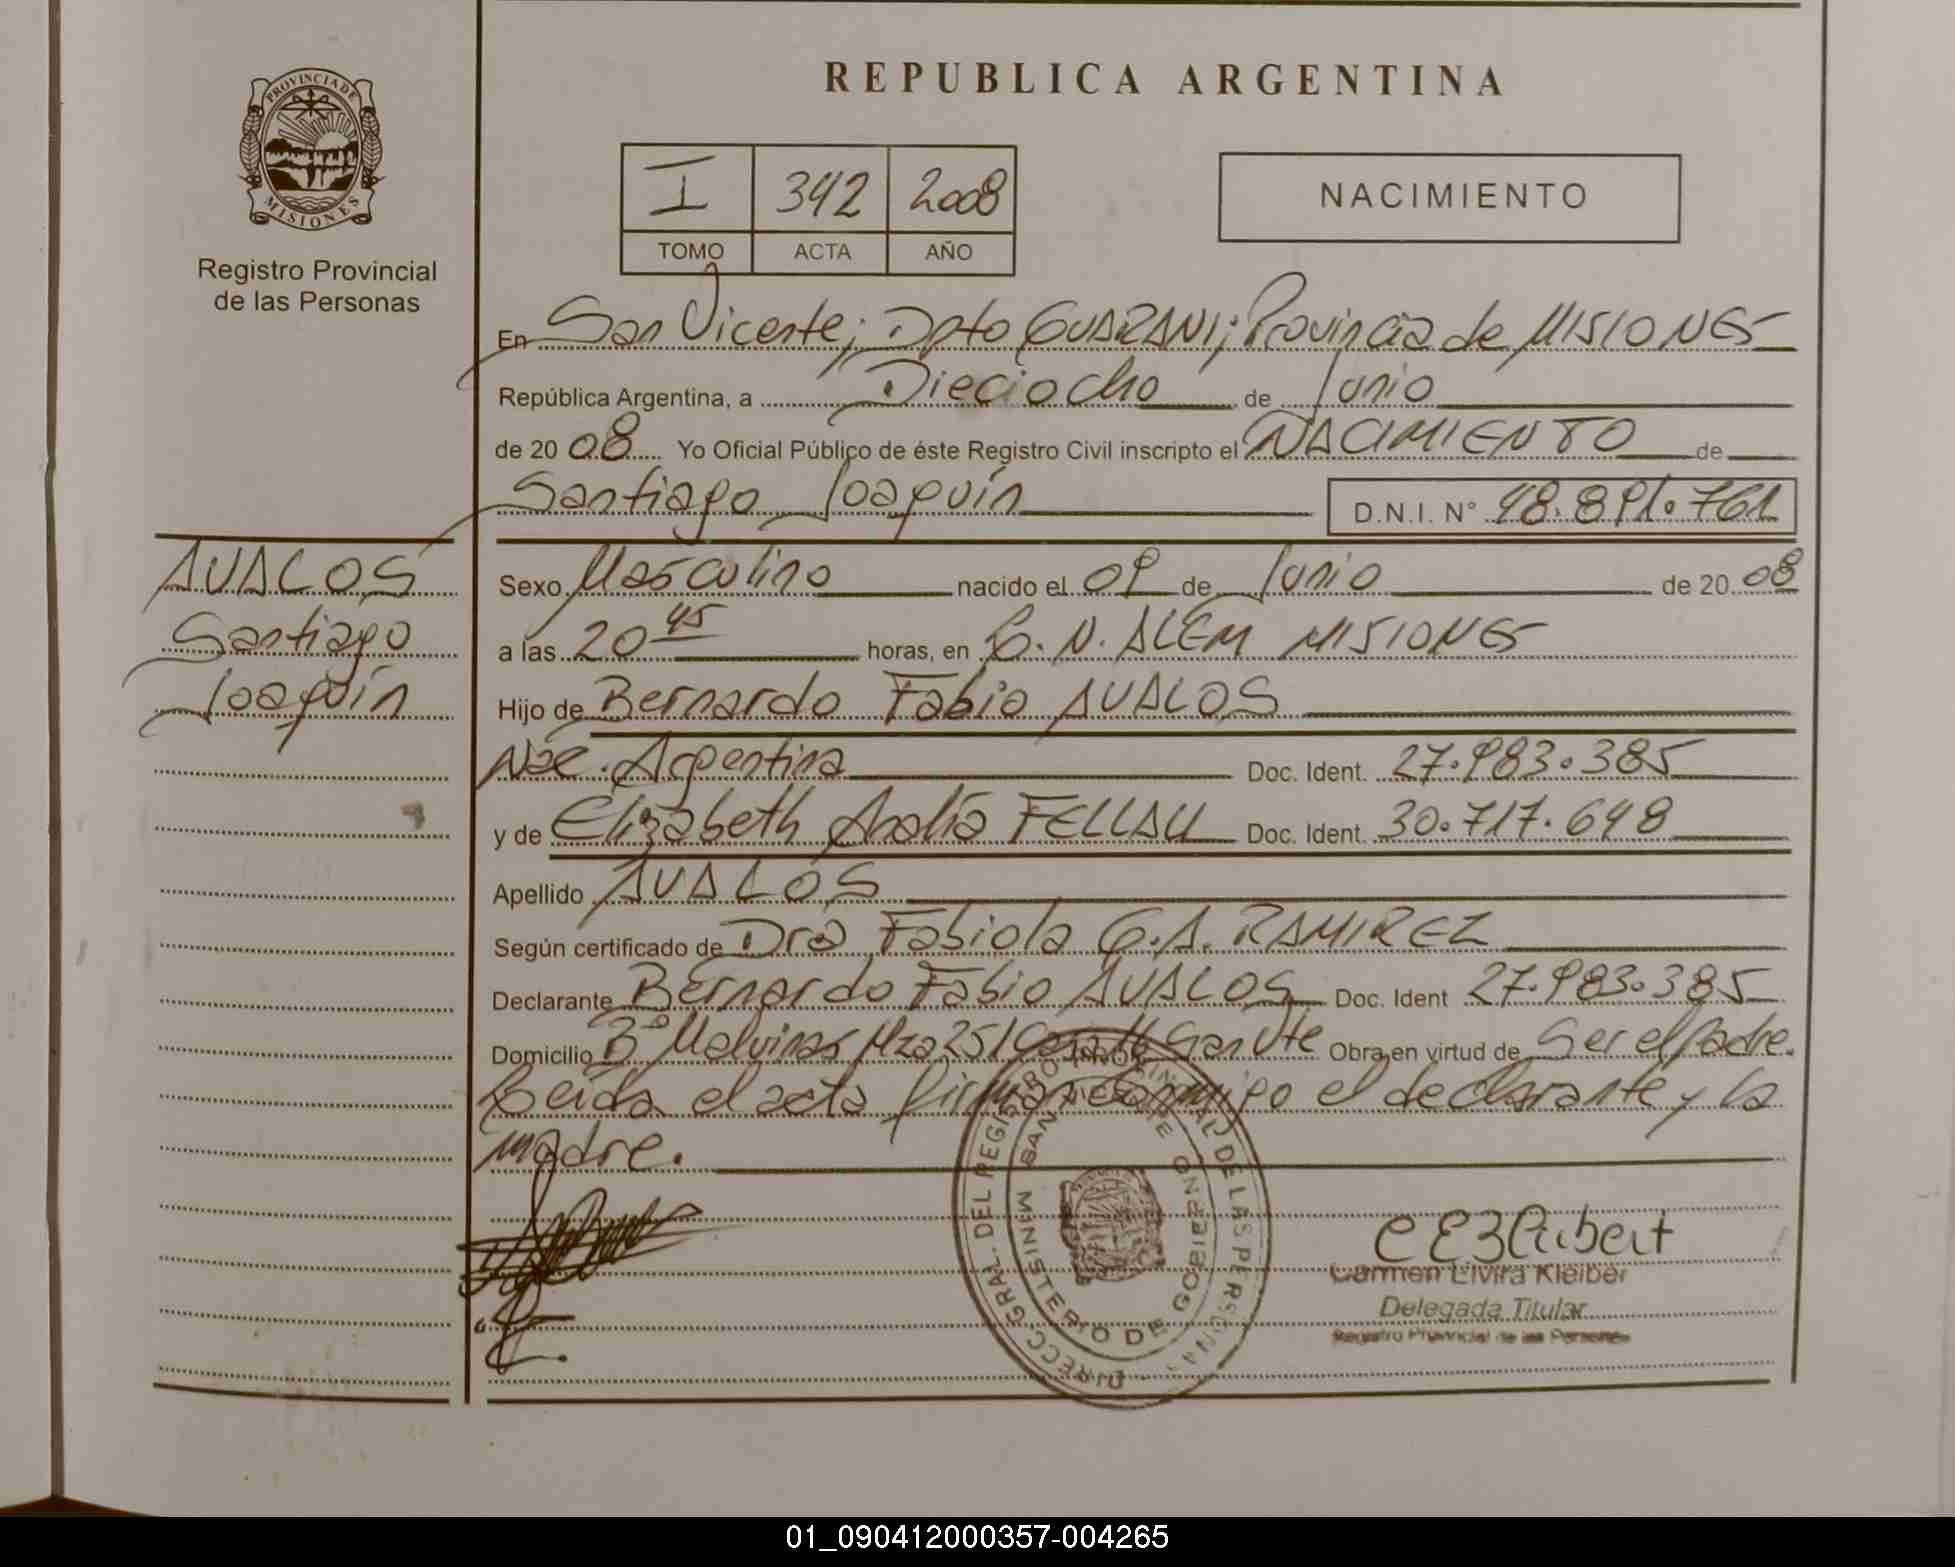 PROVINCIA DE
MISIONES
Registro Provincial
de las Personas
REPUBLICA ARGENTINA
I 342 2008
TOMO ACTA AÑO
NACIMIENTO
En San Vicente; Dpto GUARANI; Provincia de MISIONES
República Argentina, a Dieciocho de Junio
de 20 08 Yo Oficial Público de éste Registro Civil inscripto el NACIMIENTO de
Santiago Joaquín D.N.I. N° 48.891.761
AVALOS
Santiago
Joaquín
Sexo Masculino nacido el 09 de Junio de 20 08
a las 20 45 horas, en L. N. ALEM MISIONES
Hijo de Bernardo Fabio AVALOS
Nac. Argentina Doc. Ident. 27.983.385
y de Elizabeth Analía FELLAU Doc. Ident. 30.717.648
Apellido AVALOS
Según certificado de Dra Fabiola G.A. RAMIREZ
Declarante Bernardo Fabio AVALOS Doc. Ident 27.983.385
Domicilio B° Malvinas Mza 25/ Casa 16 San Vte Obra en virtud de Ser el padre.
Leída el acta firman conmigo el declarante y la
madre.
DIRECC. GRAL. DEL REGISTRO PROVINCIAL DE LAS PERSONAS
MINISTERIO DE GOBIERNO
SAN VICENTE
Carmen Elvira Kleiber
Delegada Titular
Registro Provincial de las Personas
01_090412000357-004265